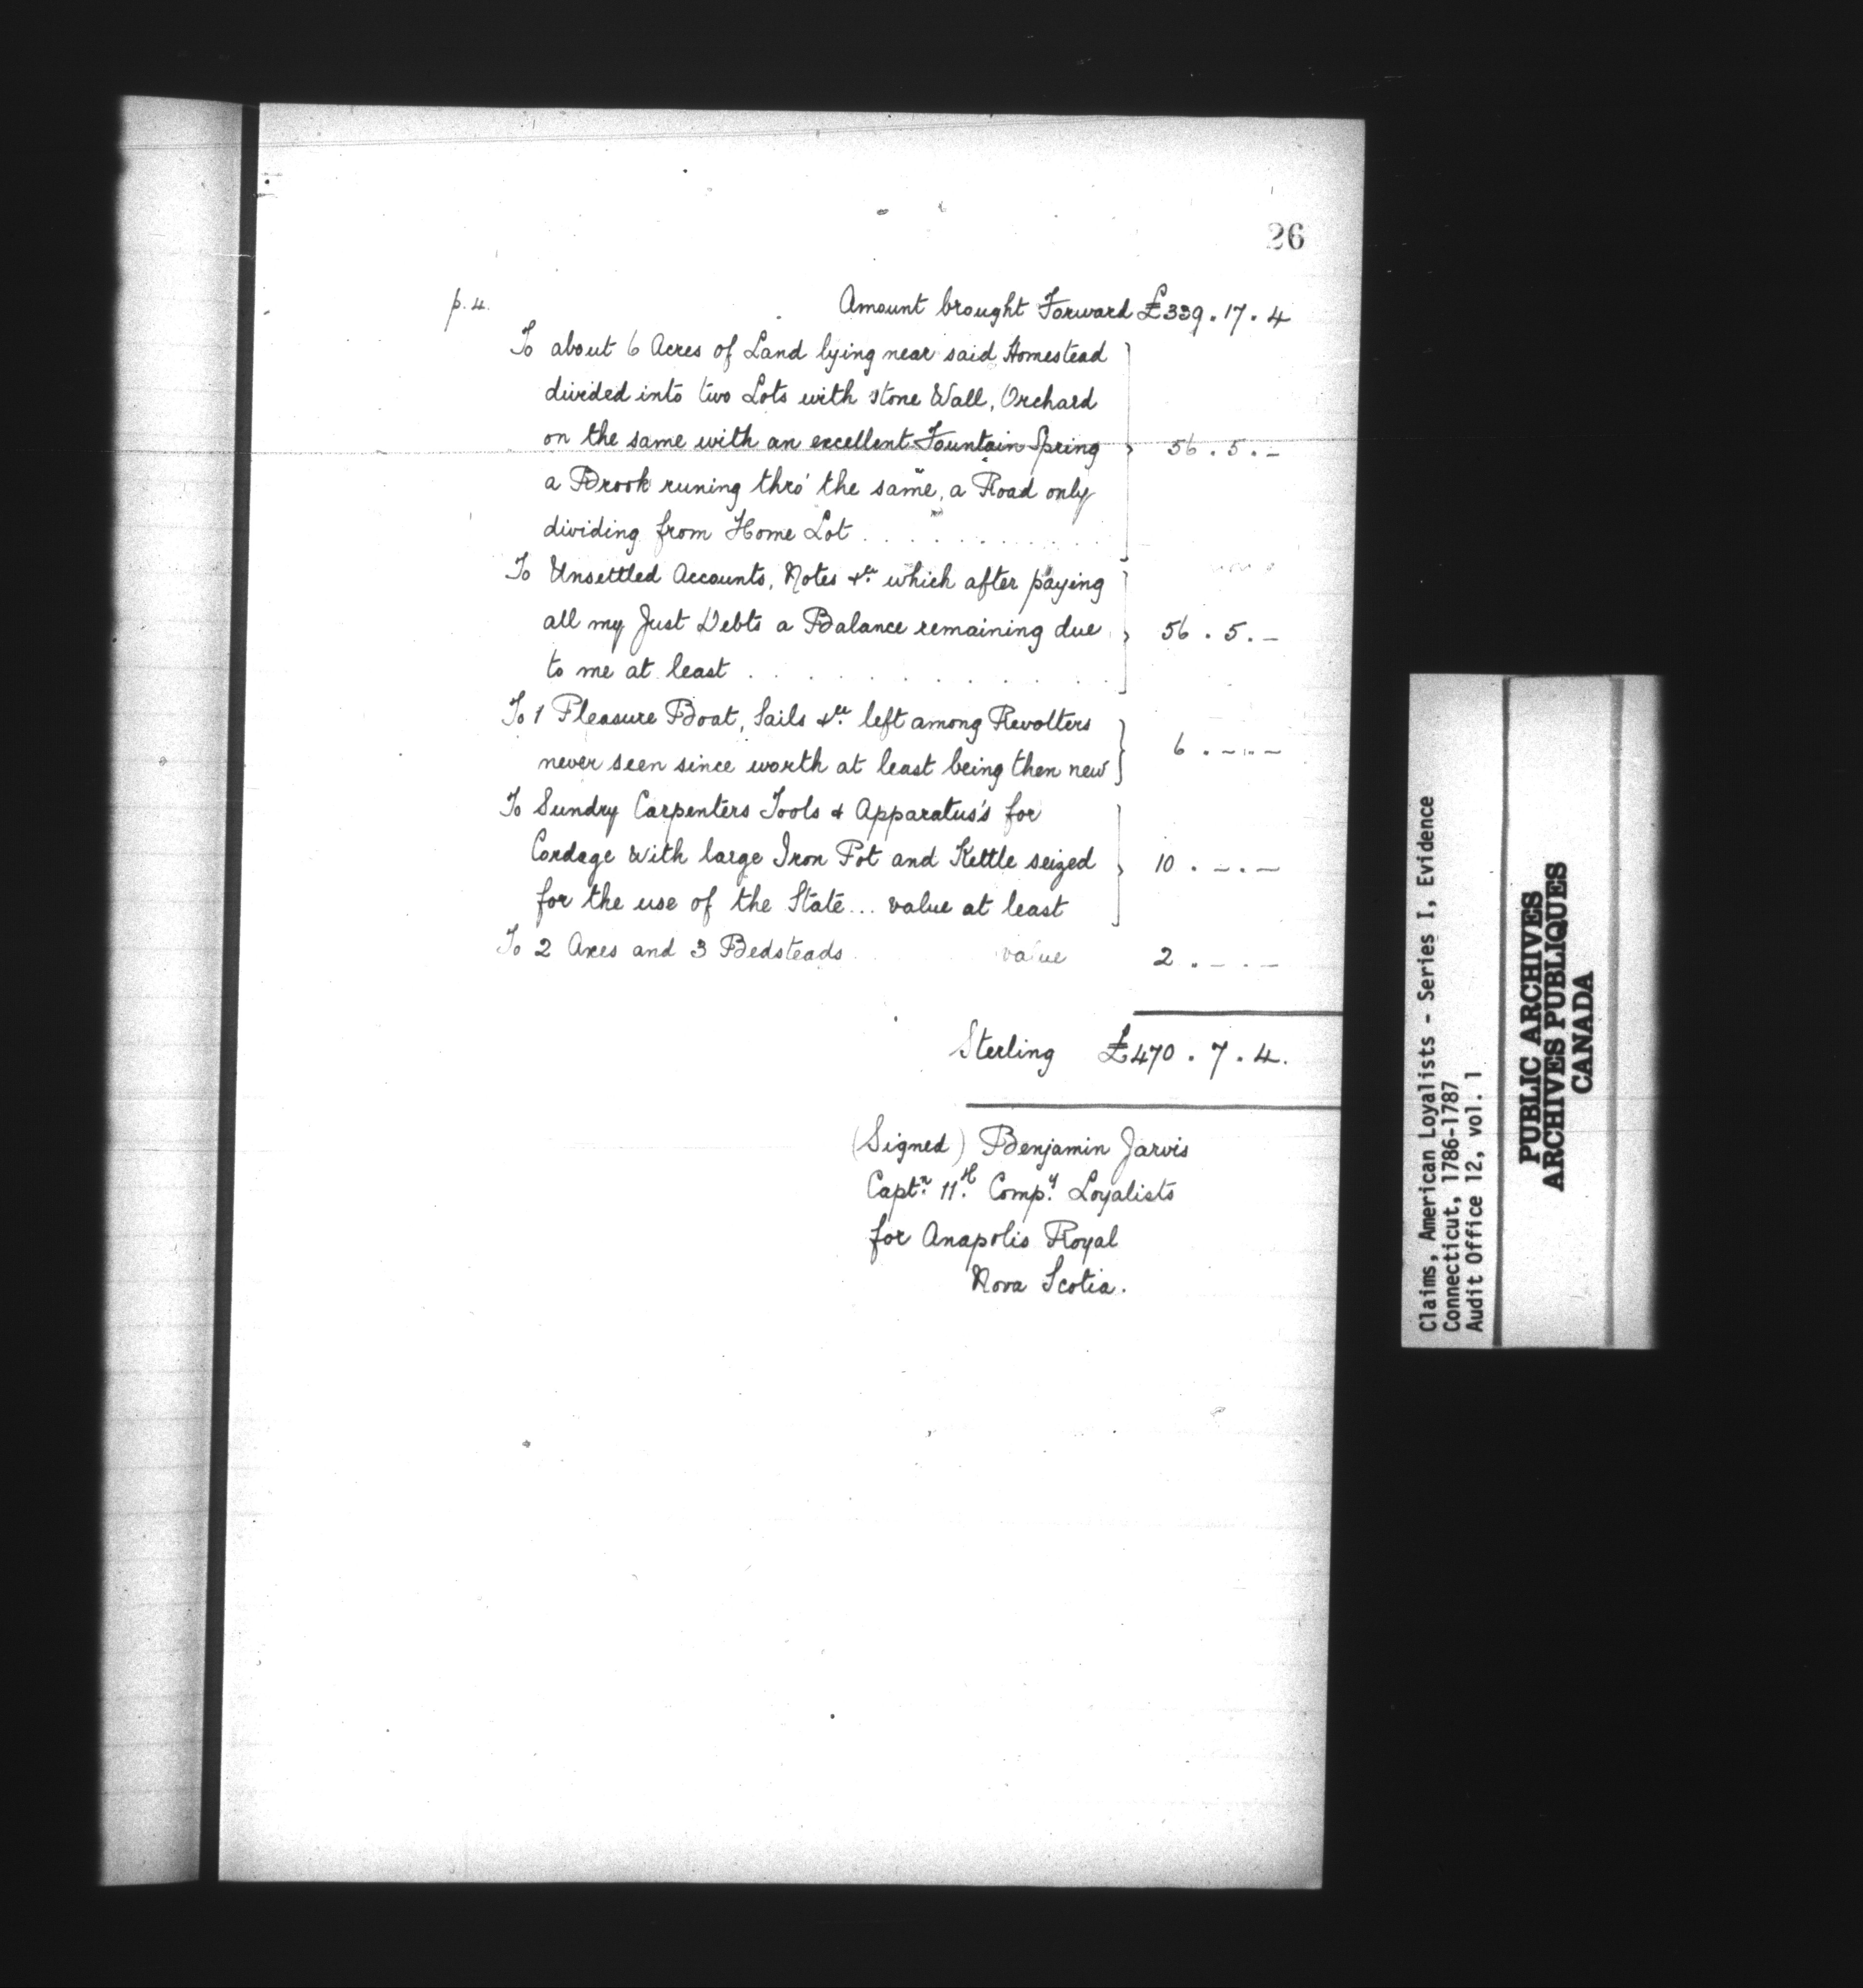 26
p. 4. Amount brought Forward £339 . 17 . 4
To about 6 Acres of Land lying near said Homestead
divided into two Lots with stone Wall, Orchard
on the same with an excellent Fountain Spring 56 . 5 . –
a Brook runing thro' the same, a Road only
dividing from Home Lot . . . . . . . . . . .
To Unsettled Accounts, Notes &ca. which after paying
all my Just Debts a Balance remaining due 56 . 5 . –
to me at least . . . . . . . . . . . .
To 1 Pleasure Boat, Sails &ca. left among Revolters
never seen since worth at least being then new 6 . – . –
To Sundry Carpenters Tools & Apparatus's for
Cordage with large Iron Pot and Kettle seized 10 . – . –
for the use of the State... value at least
To 2 Axes and 3 Bedsteads value 2 . – . –
Sterling £470 . 7 . 4.
(Signed) Benjamin Jarvis
Captn. 11th. Compy. Loyalists
for Anapolis Royal
Nova Scotia.
Claims, American Loyalists - Series I, Evidence
Connecticut, 1786-1787
Audit Office 12, vol. 1
PUBLIC ARCHIVES
ARCHIVES PUBLIQUES
CANADA